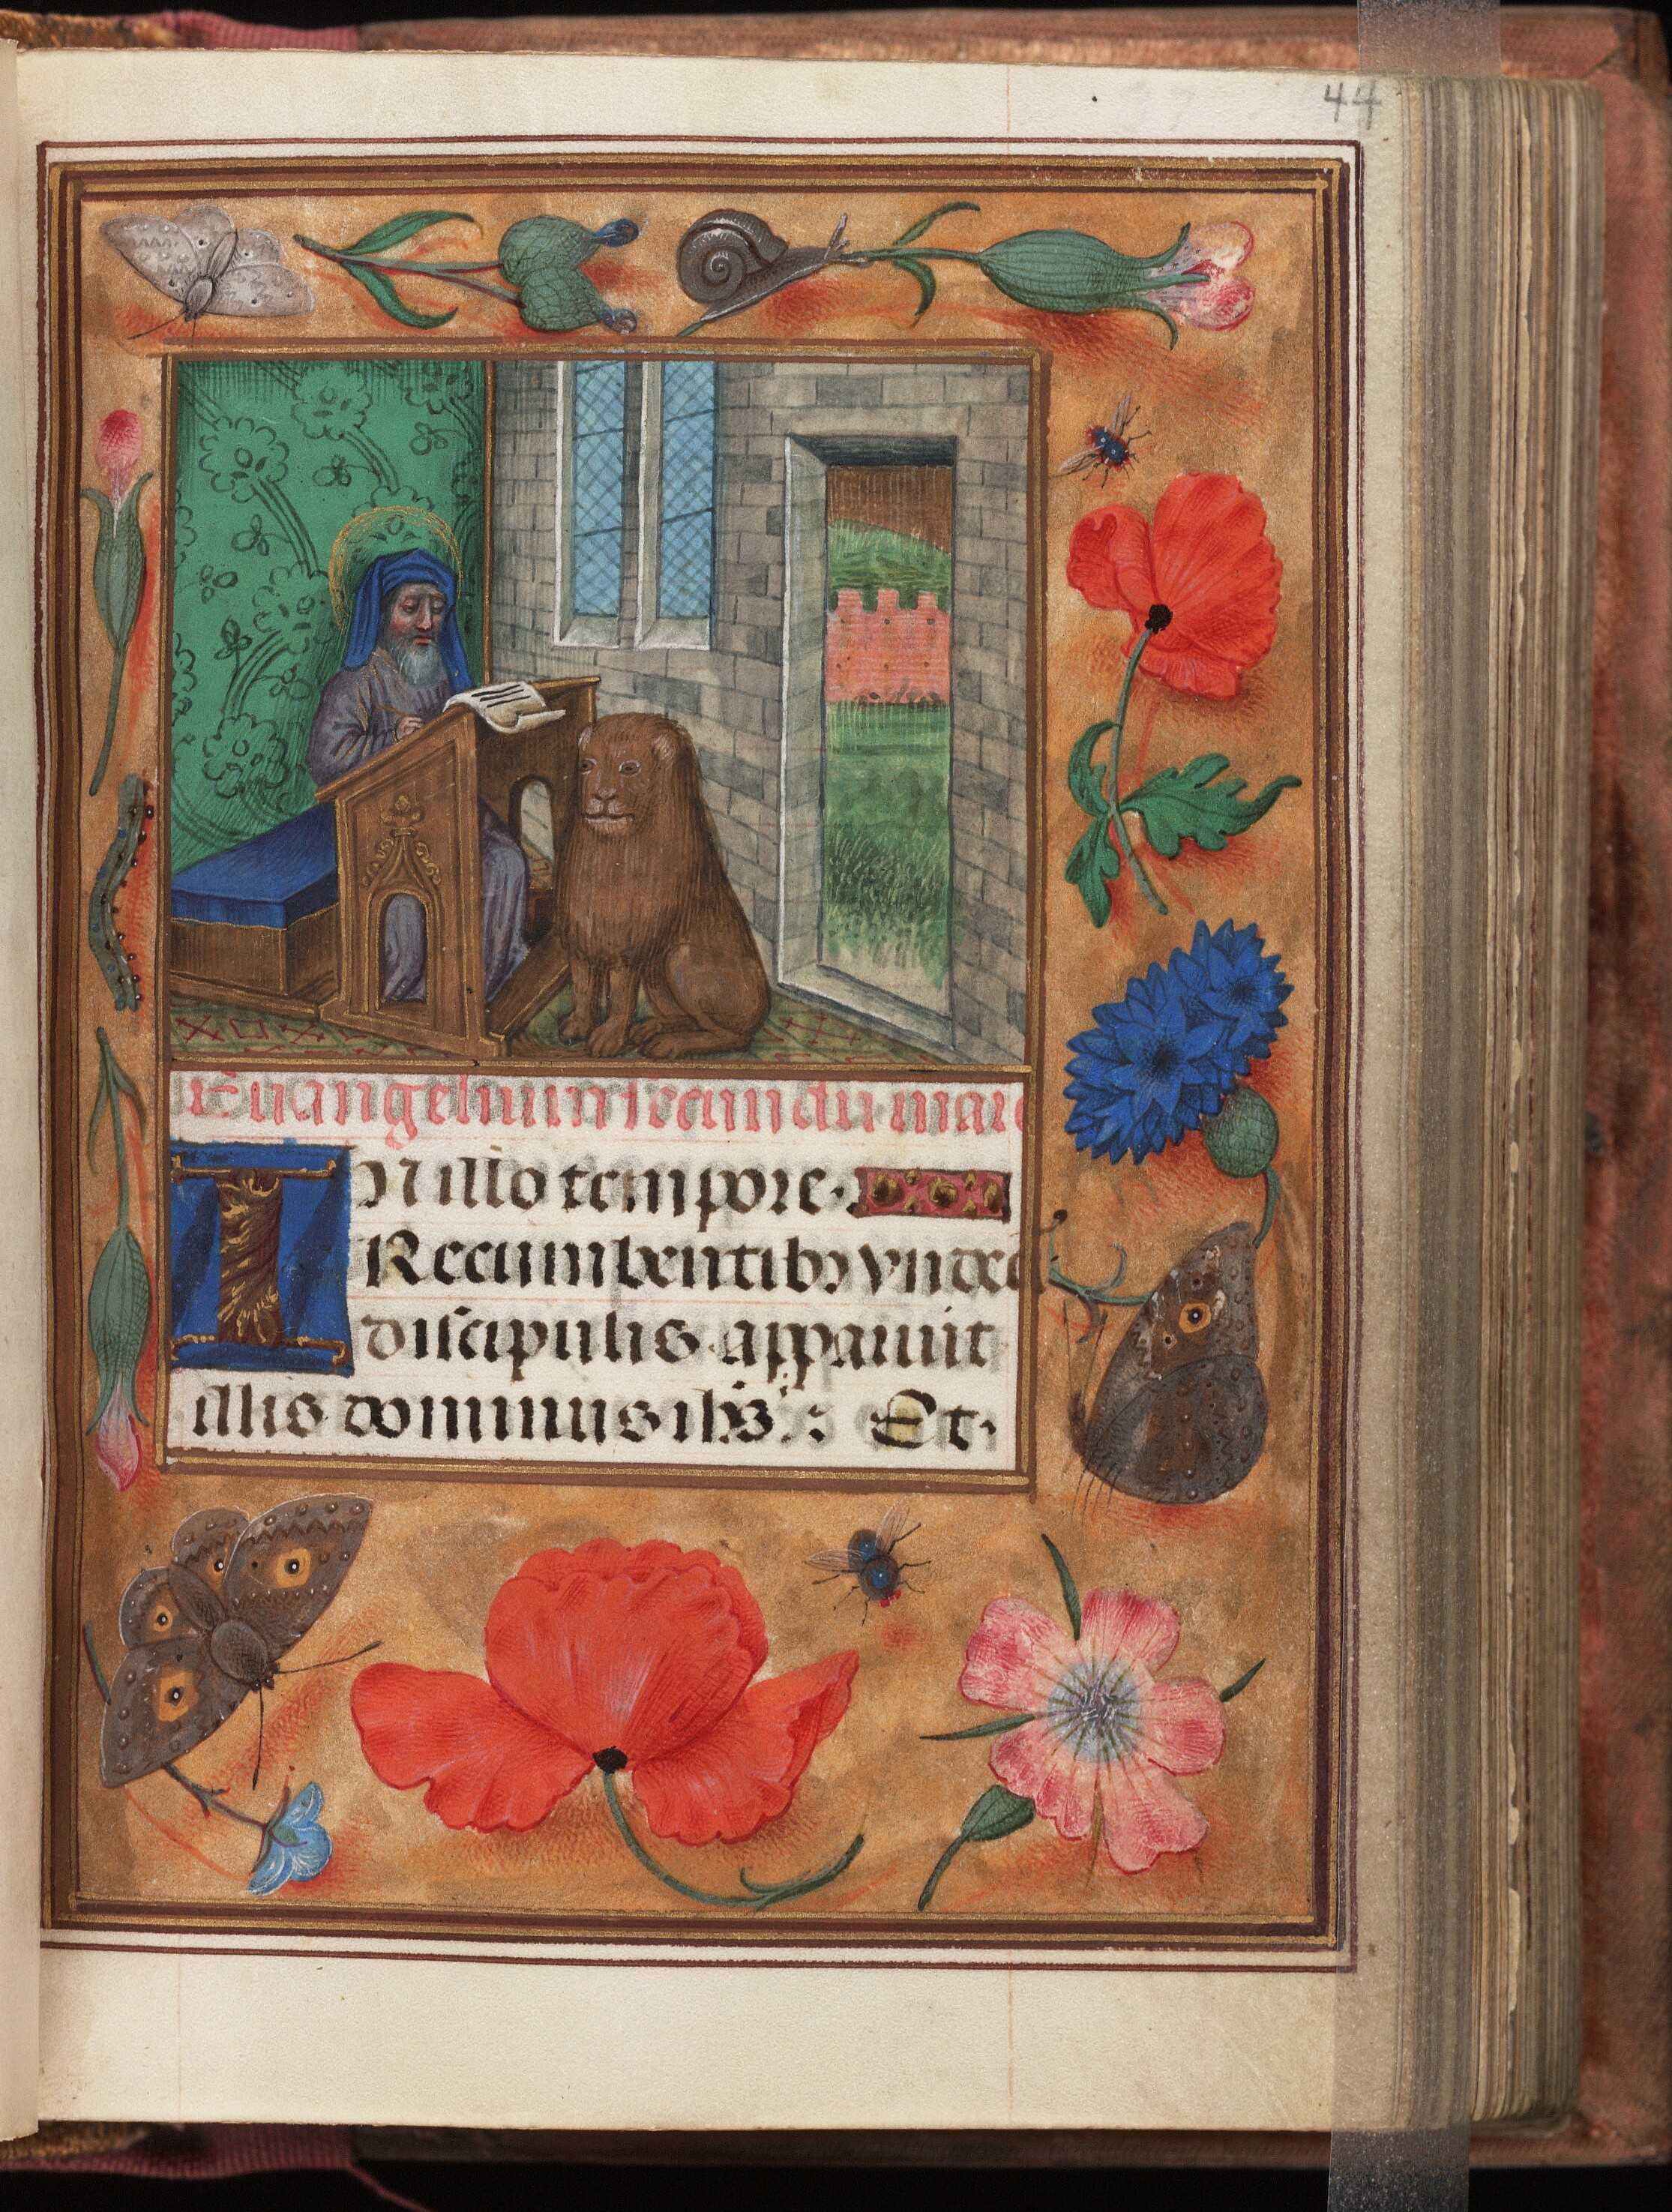 44
Euangelium secundu marc
IN illo tempore.
Recumbentibꝫ vndec
discipulis apparuit
illis dominus ihs. : Et.